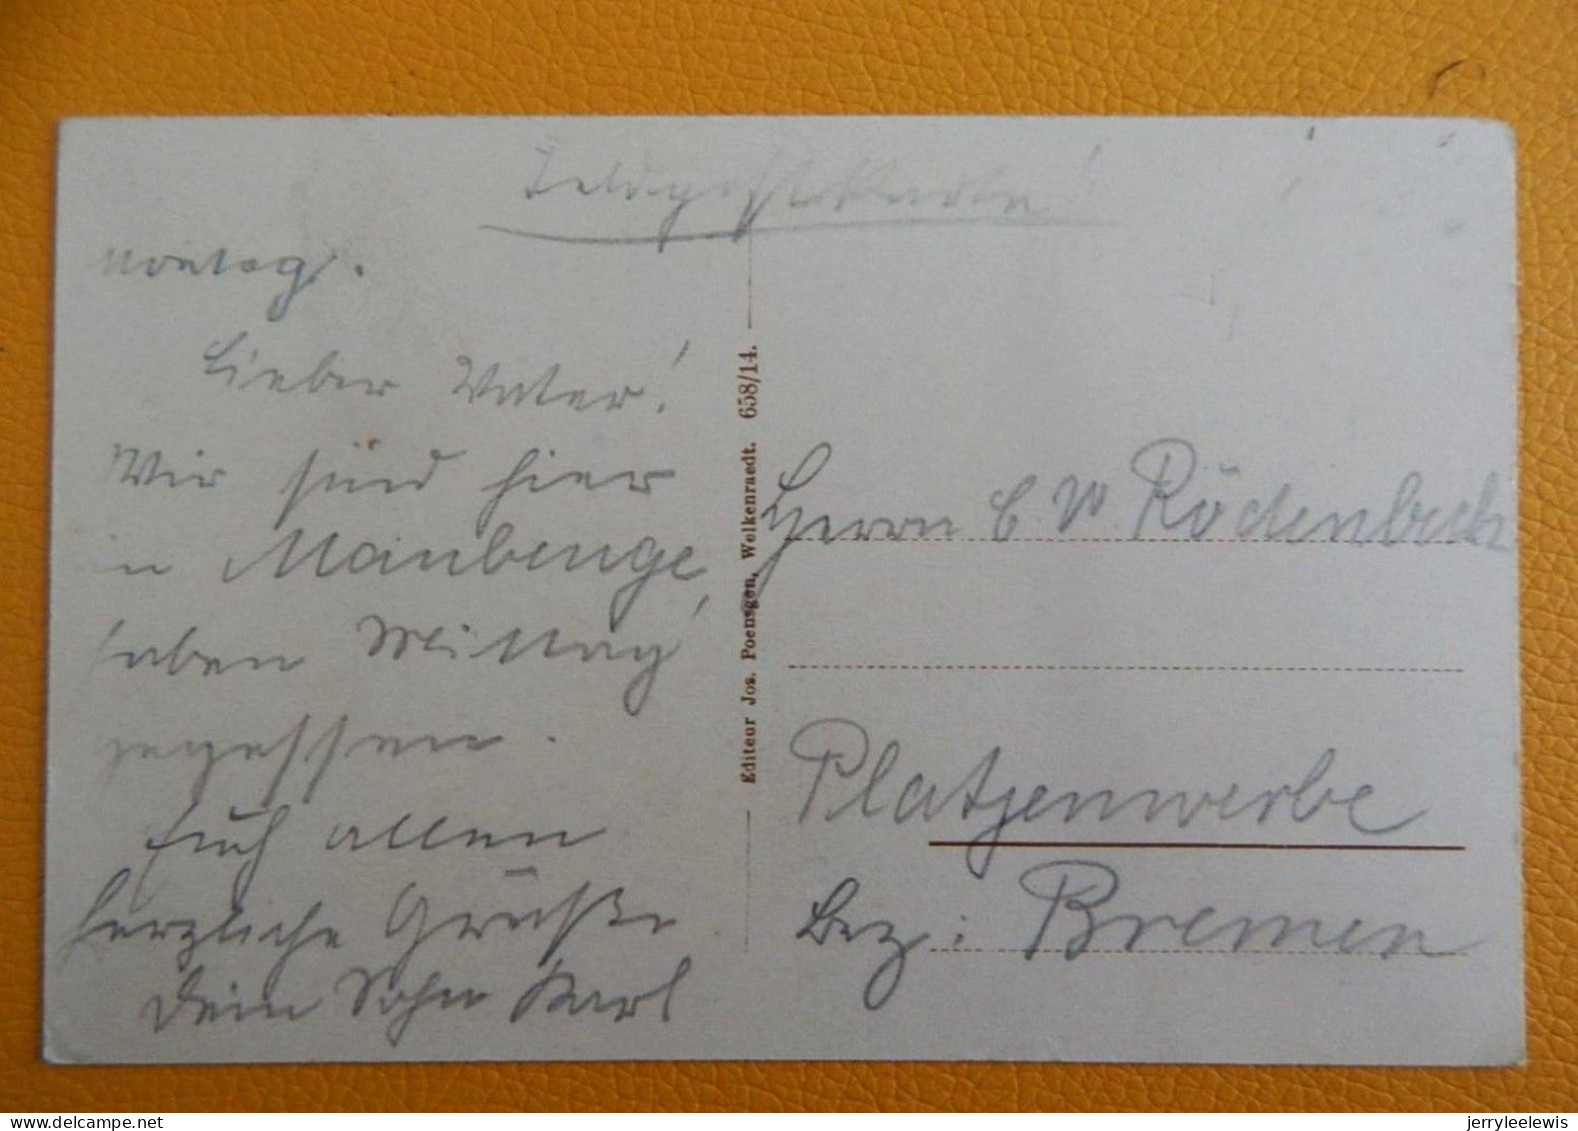 Feldpostkarte!
Montag.
Lieber Vater!
Wir sind hier
in Maubeuge,
haben Mittag
gegessen.
Euch allen
herzliche Grüße
Dein Sohn Karl
Editeur Jos. Poensgen, Welkenraedt. 658/14.
Herrn C W Rödenbeck
Platjenwerbe
Bez: Bremen
delcampe.net
jerryleelewis